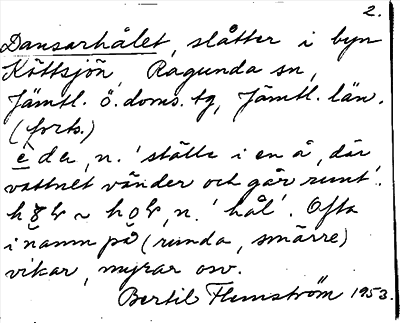 2.
Dansarhålet, slåtter i byn
Köttsjön, Ragunda sn,
Jämtl. ö. doms. tg, Jämtl. län.
(forts.)
eda, n. 'ställe i en å, där
vattnet vänder och går runt'.
n. 'hål'. Ofta
i namn på (runda, smärre)
vikar, myrar osv.
Bertil Flemström 1953.